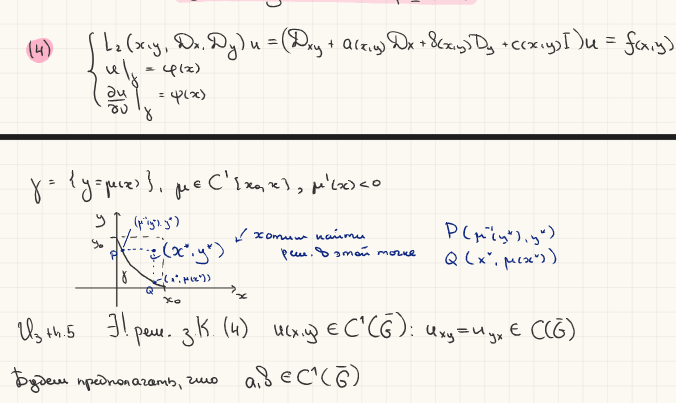 (4) { L₂(x,y, Dₓ, D_y) u = (D_xy + a(x,y) Dₓ + b(x,y) D_y + c(x,y) I) u = f(x,y)
u|_γ = φ(x)
∂u/∂ν|_γ = ψ(x)
γ = {y=μ(x)}, μ ∈ C¹[x₀, x], μ'(x)<0
y (μ⁻¹(y*), y*)
y₀ P (x*, y*) ↙ хотим найти P(μ⁻¹(y*), y*)
реш. в этой точке Q(x*, μ(x*))
γ Q (x*, μ(x*))
x₀ x
Из th.5 ∃! реш. з.К. (4) u(x,y) ∈ C¹(G̅): u_xy = u_yx ∈ C(G̅)
Будем предполагать, что a,b ∈ C¹(G̅)